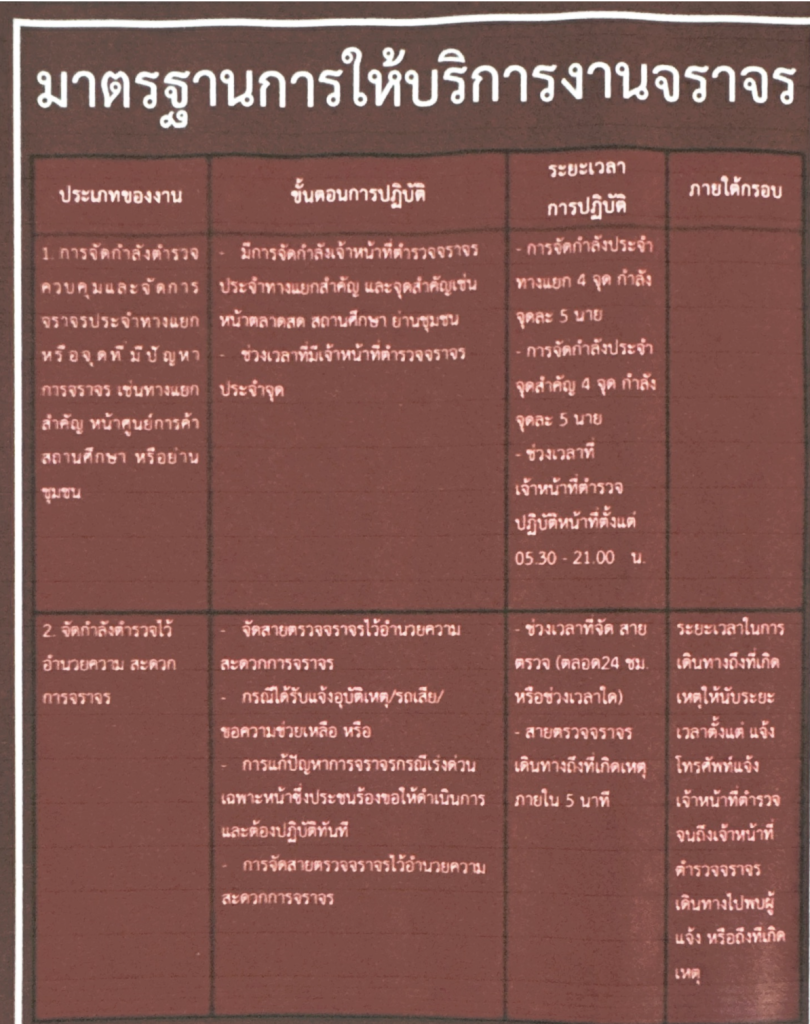 มาตรฐานการให้บริการงานจราจร
ประเภทของงาน
ขั้นตอนการปฏิบัติ
ระยะเวลา
การปฏิบัติ
ภายใต้กรอบ
1. การจัดกำลังตำรวจ
ควบคุมและจัดการ
จราจรประจำทางแยก
หรือจุดที่มีปัญหา
การจราจร เช่นทางแยก
สำคัญ หน้าศูนย์การค้า
สถานศึกษา หรือย่าน
ชุมชน
- มีการจัดกำลังเจ้าหน้าที่ตำรวจจราจร
ประจำทางแยกสำคัญ และจุดสำคัญเช่น
หน้าตลาดสด สถานศึกษา ย่านชุมชน
- ช่วงเวลาที่มีเจ้าหน้าที่ตำรวจจราจร
ประจำจุด
- การจัดกำลังประจำ
ทางแยก 4 จุด กำลัง
จุดละ 5 นาย
- การจัดกำลังประจำ
จุดสำคัญ 4 จุด กำลัง
จุดละ 5 นาย
- ช่วงเวลาที่
เจ้าหน้าที่ตำรวจ
ปฏิบัติหน้าที่ตั้งแต่
05.30 - 21.00 น.
2. จัดกำลังตำรวจไว้
อำนวยความ สะดวก
การจราจร
- จัดสายตรวจจราจรไว้อำนวยความ
สะดวกการจราจร
- กรณีได้รับแจ้งอุบัติเหตุ/รถเสีย/
ขอความช่วยเหลือ หรือ
- การแก้ปัญหาการจราจรกรณีเร่งด่วน
เฉพาะหน้าซึ่งประชนร้องขอให้ดำเนินการ
และต้องปฏิบัติทันที
- การจัดสายตรวจจราจรไว้อำนวยความ
สะดวกการจราจร
- ช่วงเวลาที่จัด สาย
ตรวจ (ตลอด24 ชม.
หรือช่วงเวลาใด)
- สายตรวจจราจร
เดินทางถึงที่เกิดเหตุ
ภายใน 5 นาที
ระยะเวลาในการ
เดินทางถึงที่เกิด
เหตุให้นับระยะ
เวลาตั้งแต่ แจ้ง
โทรศัพท์แจ้ง
เจ้าหน้าที่ตำรวจ
จนถึงเจ้าหน้าที่
ตำรวจจราจร
เดินทางไปพบผู้
แจ้ง หรือถึงที่เกิด
เหตุ